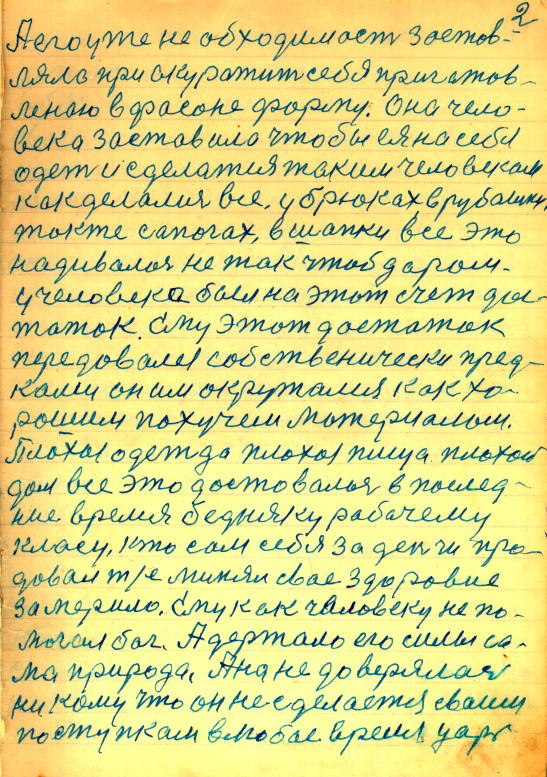 2
А его уже не обходимост застов-
ляла при окуратит себя пригатов-
леною в фасоне форму. Она чело-
века заставила чтобы ея на себя
одет и сделатия таким человеком
как делалия все, у брюках в рубашки,
также сапогах, в шапки все это
надивалоя не так чтоб даром-
у человека был на этот счет дос-
таток. Ему этот достаток
передовался собственически пред-
ками он им окружалия как хо-
рошим пахучем материалом.
Плохоя одежда плохоя пища плохой
дом все это достовалоя в послед-
ние время бедняку рабачему
класу, кто сам себя за денги про-
довал т/е минял свае здоровие
за мерило. Ему как чаловеку не по-
могал бог. А держало его силы са-
ма природа. Ана не доверялая
никому что он не сделается сваим
поступкам в любое время царь-